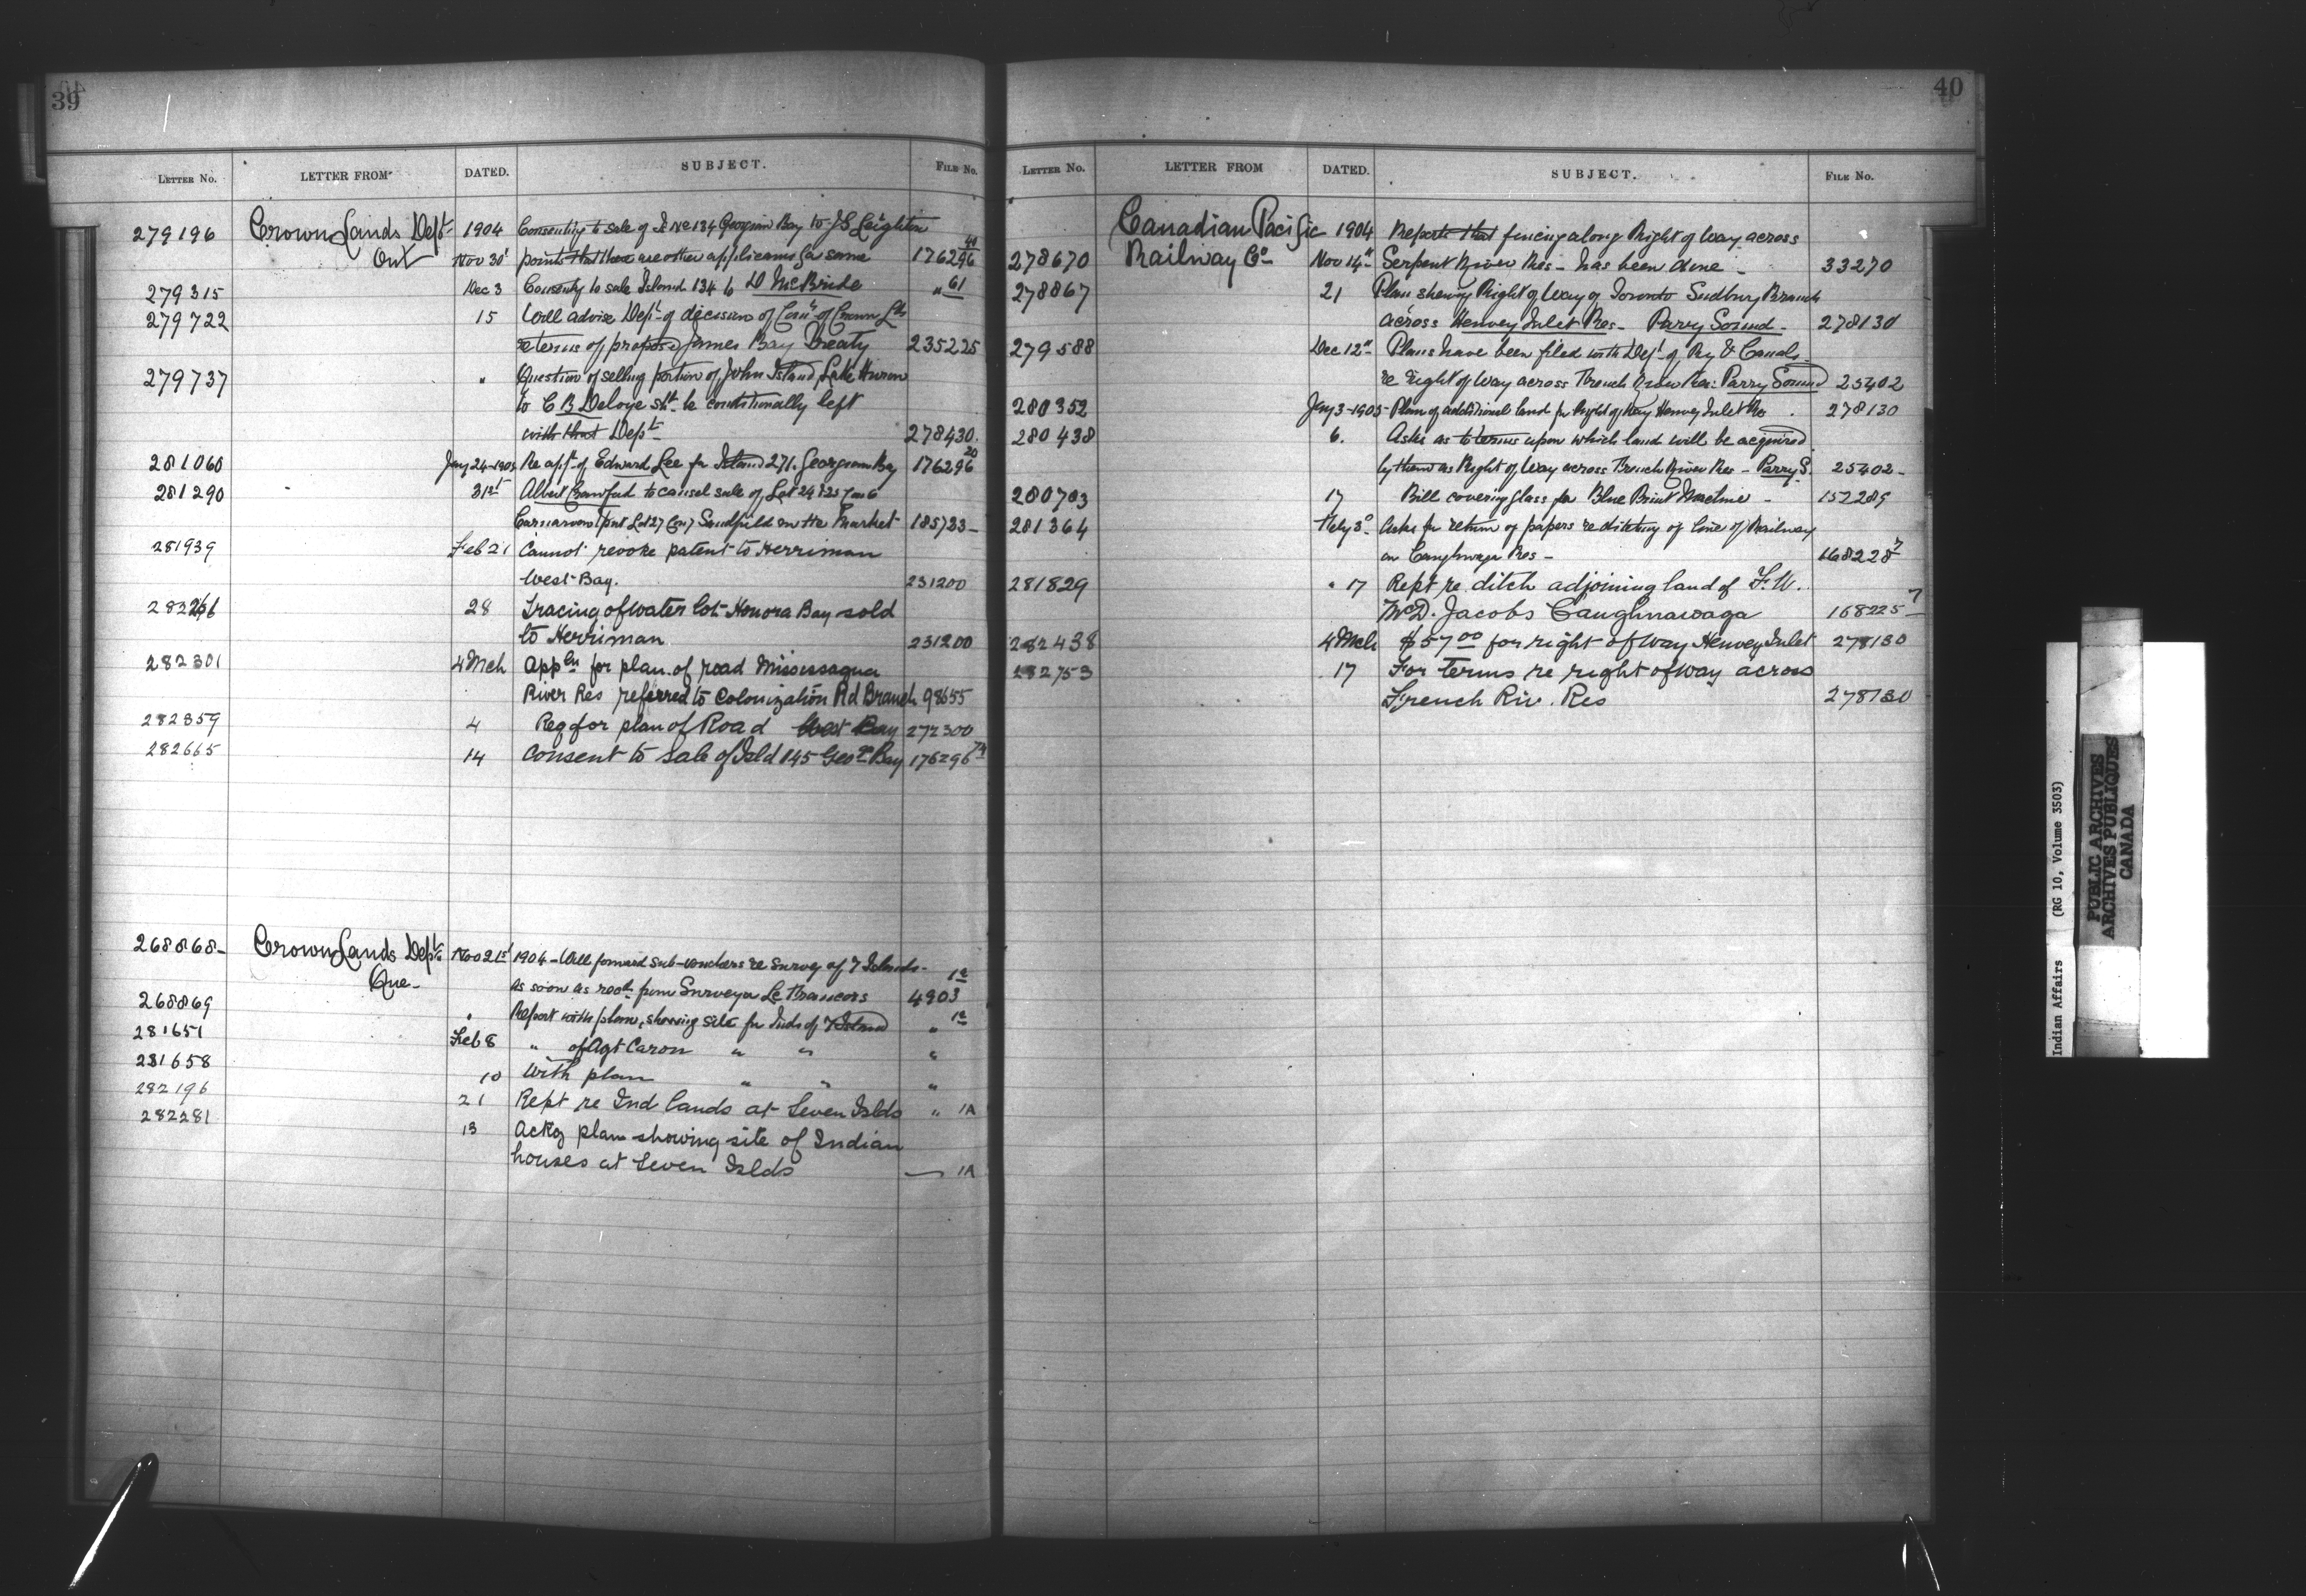 39
LETTER NO. LETTER FROM DATED. SUBJECT. FILE NO.
279196 Crown Lands Dept 1904 Consenting to sale of Is No 134 Georgian Bay to J S Leighton
Ont Nov 30 points that there are other applicants for same 176296 41
279315 Dec 3 Consents to sale Island 134 to D McBride " 61
279722 15 Will advise Dept of decision of Com of Crown Lds
re terms of proposed James Bay Treaty 235225
279737 " Question of selling portion of John Island, Lake Huron
to C B Deloye sht be conditionally left
with that Dept 278430.
281060 Jany 24-1905 Re appt of Edward Lee for Island 271. Georgian Bay 176296 20
281290 31st Albert Crawford to cancel sale of Lot 24 & 25 Con 6
Carnarvon & part Lot 27 Con 7 Sandfield on the Market 185733-
281939 Feb 21 Cannot revoke patent to Herriman
West Bay. 231200
282261 28 Tracing of water lot Honora Bay sold
to Herriman 231200
282301 4 Mch Appln for plan of road Mississagua
River Res referred to Colonization Rd Branch 98655
282359 4 Req for plan of Road West Bay 272300
282665 14 Consent to sale of Isld 145 Geon Bay 176296 74
268868- Crown Lands Dept Nov 21st 1904 - Will forward sub-vouchers re Survey of 7 Islands-
Que- as soon as recd from Surveyor Le Francois 4903 1a
268869 " Report with plan, showing site for Inds of 7 Island " 1a
281651 Feb 8 " of Agt Caron " " "
281658 10 With plan " " "
282196 21 Rept re Ind lands at Seven Islds " 1A
282281 13 Ackg plan showing site of Indian
houses at Seven Islds — 1A
40
LETTER NO. LETTER FROM DATED. SUBJECT. FILE NO.
Canadian Pacific 1904 Reports that fencing along Right of Way across
278670 Railway Co Nov 14" Serpent River Res - has been done - 33270
278867 21 Plan shewing Right of Way of Toronto Sudbury Branch
across Henvey Inlet Res- Parry Sound- 278130
279588 Dec 12" Plans have been filed with Dept of Ry & Canals-
re right of Way across French River Res: Parry Sound 25402
280352 Jany 3-1905- Plan of additional land for Right of Way Henvey Inlet Res. 278130
280438 6. Asks as to terms upon which land will be acquired
by them as Right of Way across French River Res - Parry S. 25402-
280703 17 Bill covering glass for Blue Print Machine - 152289
281364 Feby 3 Asks for return of papers re ditching of line of Railway
on Caughnwaga Res- 168228 7
281829 " 17 Rept re ditch adjoining land of F. W.
McD. Jacobs Caughnawaga 168225 7
282438 4 Mch $57.00 for right of Way Henvey Inlet 278130
282753 17 For terms re right of way across
French Riv. Res 278130
Indian Affairs (RG 10, Volume 3503)
PUBLIC ARCHIVES
ARCHIVES PUBLIQUES
CANADA